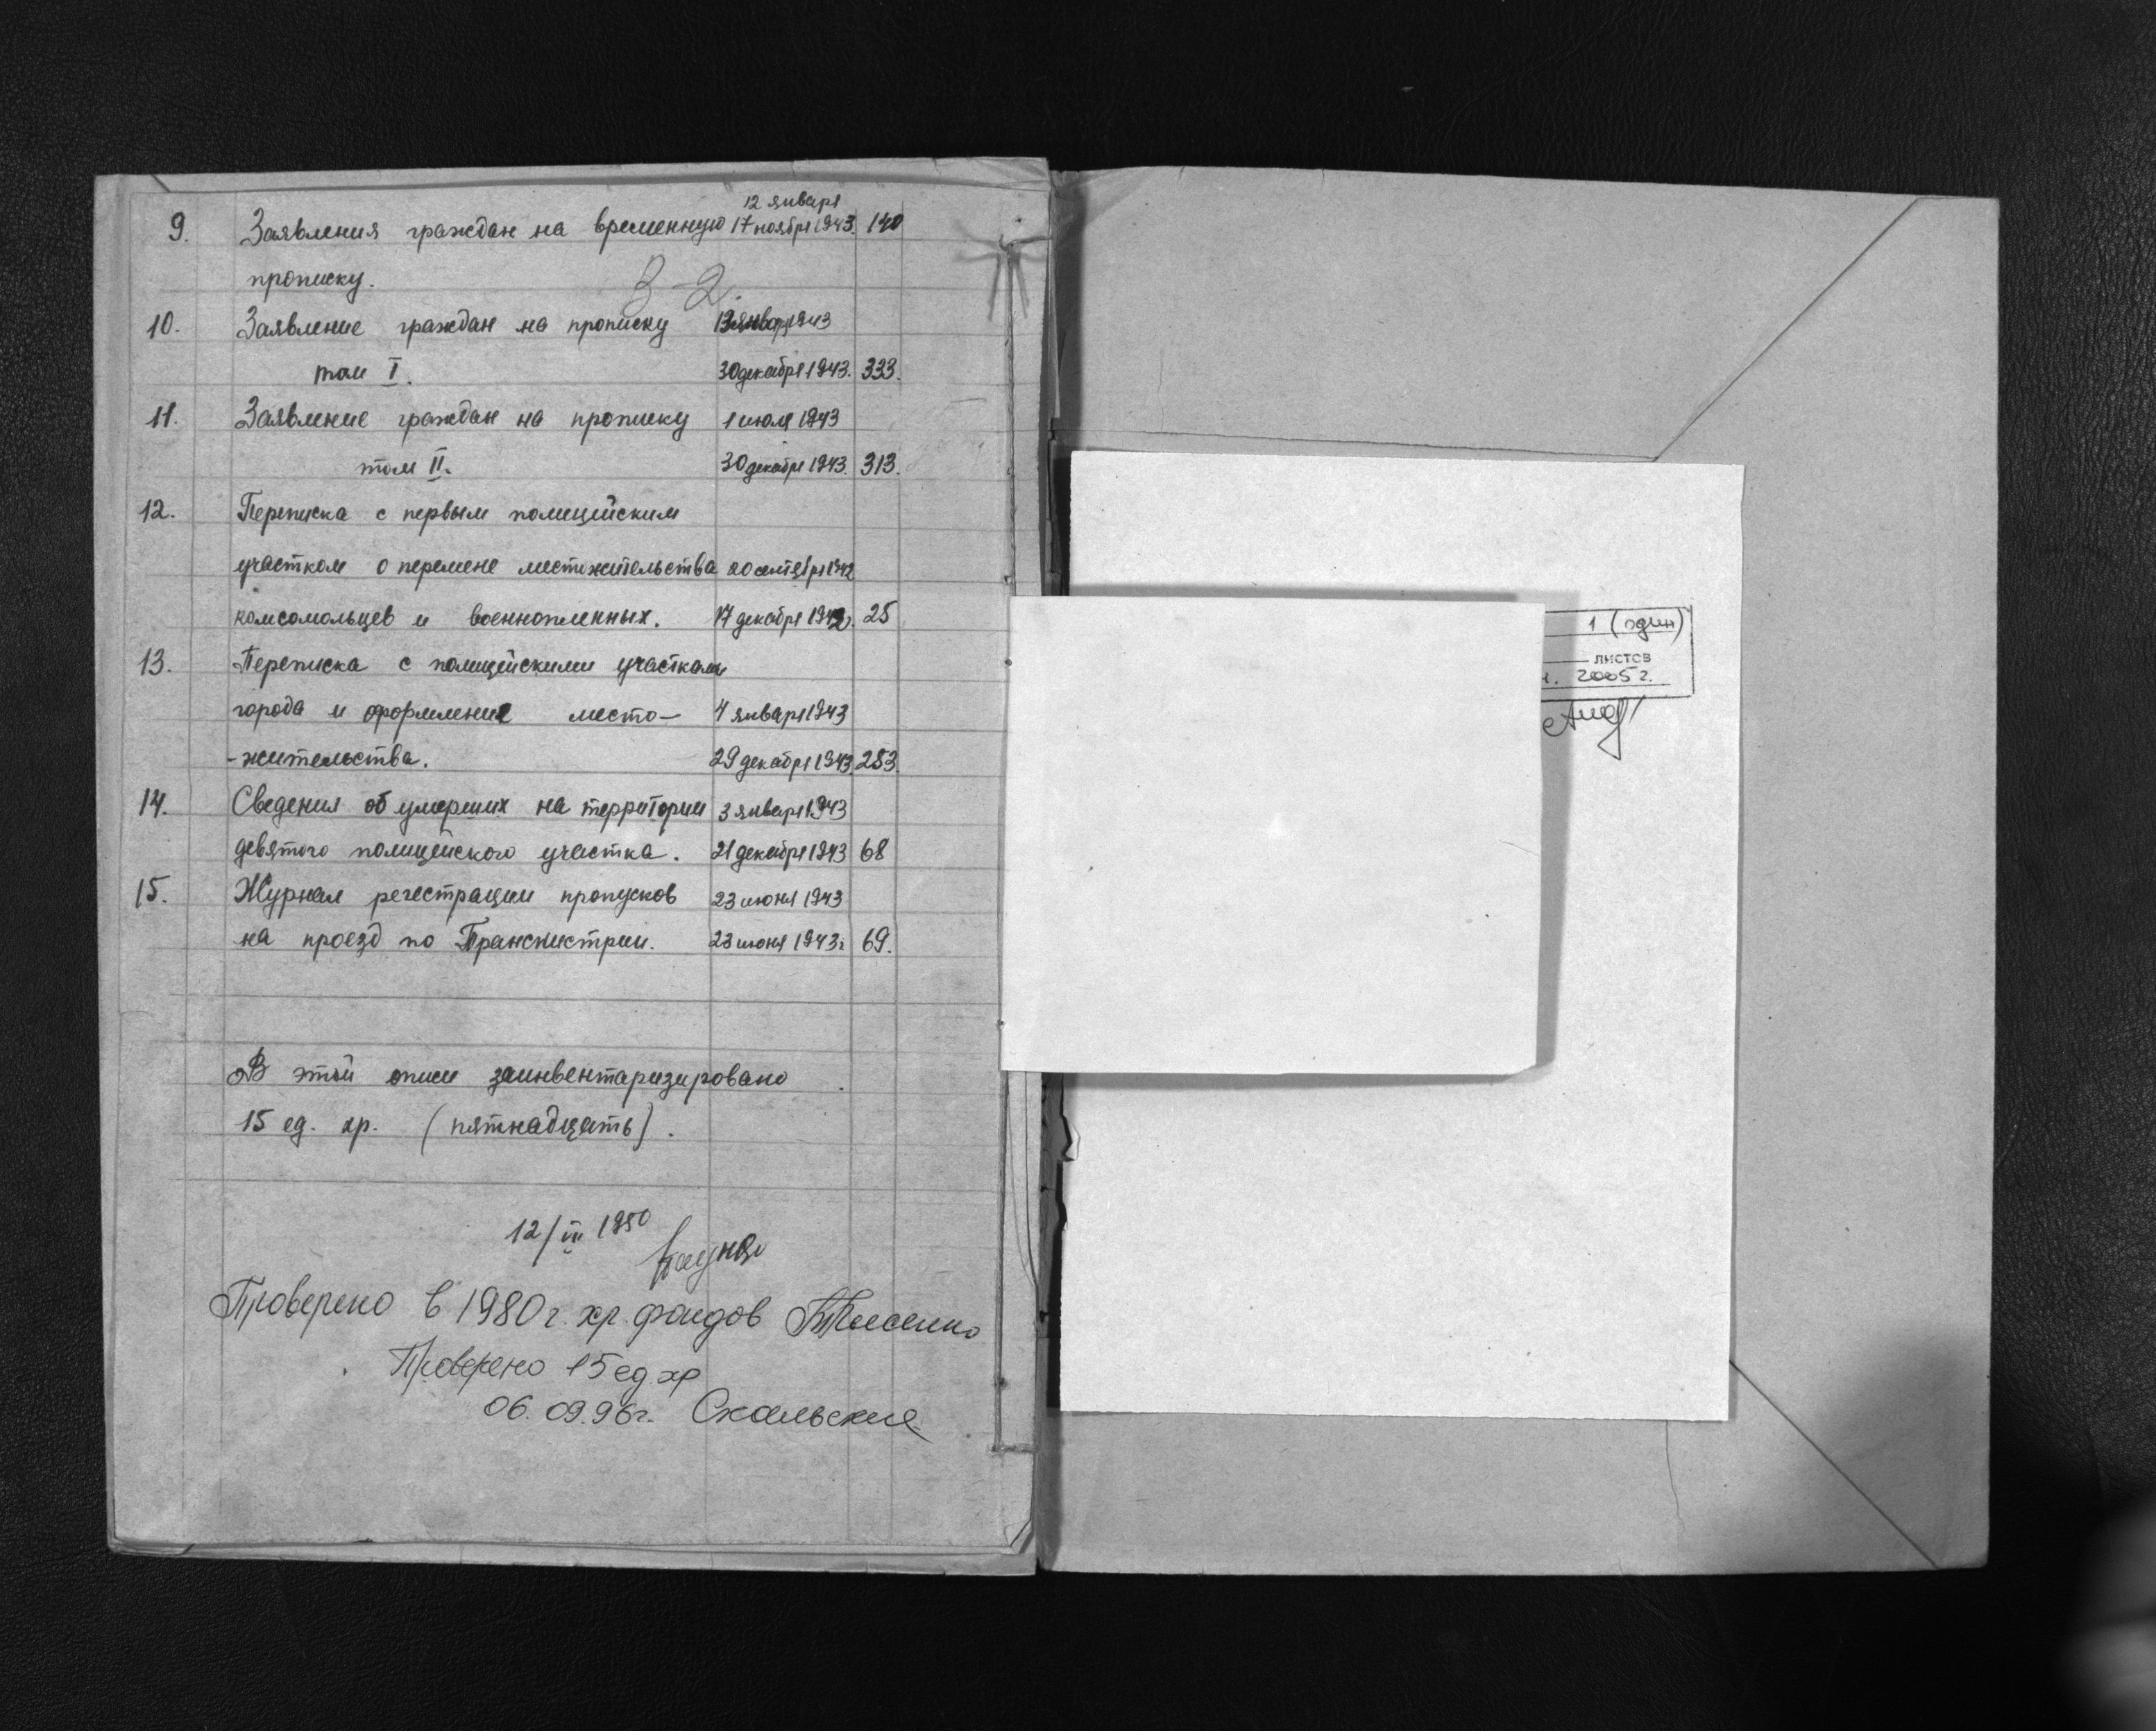 12 января
9. Заявления граждан на временную 17 ноября 1943. 140
прописку.
10. Заявление граждан на прописку 1943
том I. 30 декабря 1943. 333.
11. Заявление граждан на прописку 1 июля 1943
том II. 30 декабря 1943. 313.
12. Переписка с первым полицейским
участком о перемене местожительства 20 сентября 1942
комсомольцев и военнопленных. 17 декабря 1942. 25
13. Переписка с полицейскими участками
города и оформление место- 4 января 1943
-жительства. 29 декабря 1943. 253.
14. Сведения об умерших на территории 3 января 1943
девятого полицейского участка. 21 декабря 1943 68
15. Журнал регестрации пропусков 23 июня 1943
на проезд по Транснистрии. 23 июня 1943г 69.
В этой описи заинвентаризировано
15 ед. хр. (пятнадцать).
12/III 1950
Проверено в 1980 г. хр. фондов
Проверено 15 ед. хр
06.09.96г. Скальская
1 (один)
листов
2005 г.